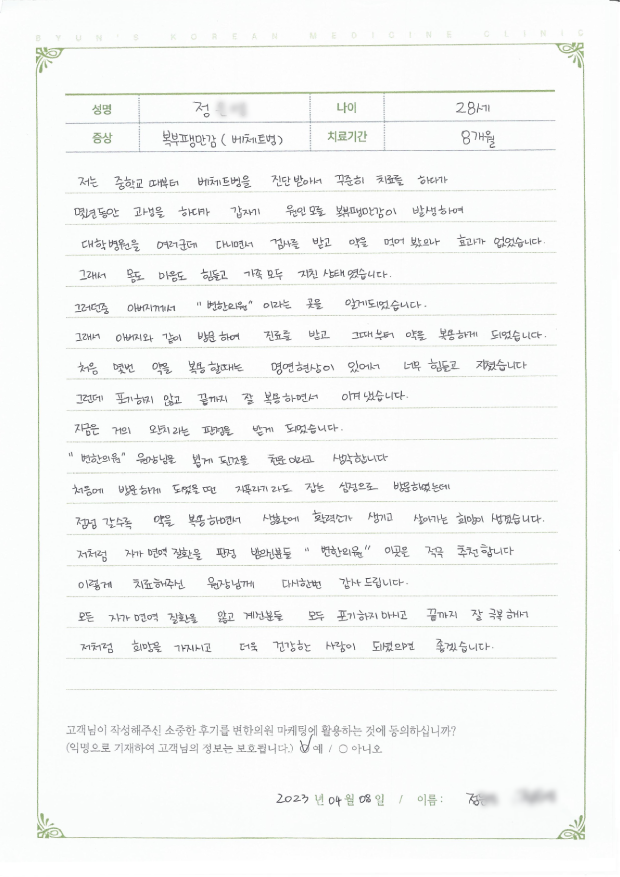 BYUN'S KOREAN MEDICINE CLINIC
성명 정 나이 28세
증상 복부팽만감 ( 베체트병) 치료기간 8개월
저는 중학교 때부터 베체트병을 진단 받아서 꾸준히 치료를 하다가
몇년동안 고생을 하다가 갑자기 원인 모를 복부팽만감이 발생하여
대학병원을 여러군데 다니면서 검사를 받고 약을 먹어 봤으나 효과가 없었습니다.
그래서 몸도 마음도 힘들고 가족 모두 지친 상태였습니다.
그러던중 아버지께서 "변한의원" 이라는 곳을 알게되었습니다.
그래서 아버지와 같이 방문하여 진료를 받고 그때부터 약을 복용하게 되었습니다.
처음 몇번 약을 복용할때는 명현현상이 있어서 너무 힘들고 지쳤습니다
그런데 포기하지 않고 끝까지 잘 복용하면서 이겨 냈습니다.
지금은 거의 완치라는 판정을 받게 되었습니다.
"변한의원" 원장님을 뵙게 된것을 천운이라고 생각합니다
처음에 방문하게 되었을때 지푸라기라도 잡는 심정으로 방문하였는데
점점 갈수록 약을 복용하면서 생활에 활력소가 생기고 살아가는 희망이 생겼습니다.
저처럼 자가면역질환을 판정 받으신분들 "변한의원" 이곳은 적극 추천합니다
이렇게 치료해주신 원장님께 다시한번 감사드립니다.
모든 자가면역 질환을 앓고 계신분들 모두 포기하지마시고 끝까지 잘 극복해서
저처럼 희망을 가지시고 더욱 건강한 사람이 되셨으면 좋겠습니다.
고객님이 작성해주신 소중한 후기를 변한의원 마케팅에 활용하는 것에 동의하십니까?
(익명으로 기재하여 고객님의 정보는 보호됩니다.) ○ 예 / ○ 아니오
2023 년 04 월 08 일 / 이름 : 정